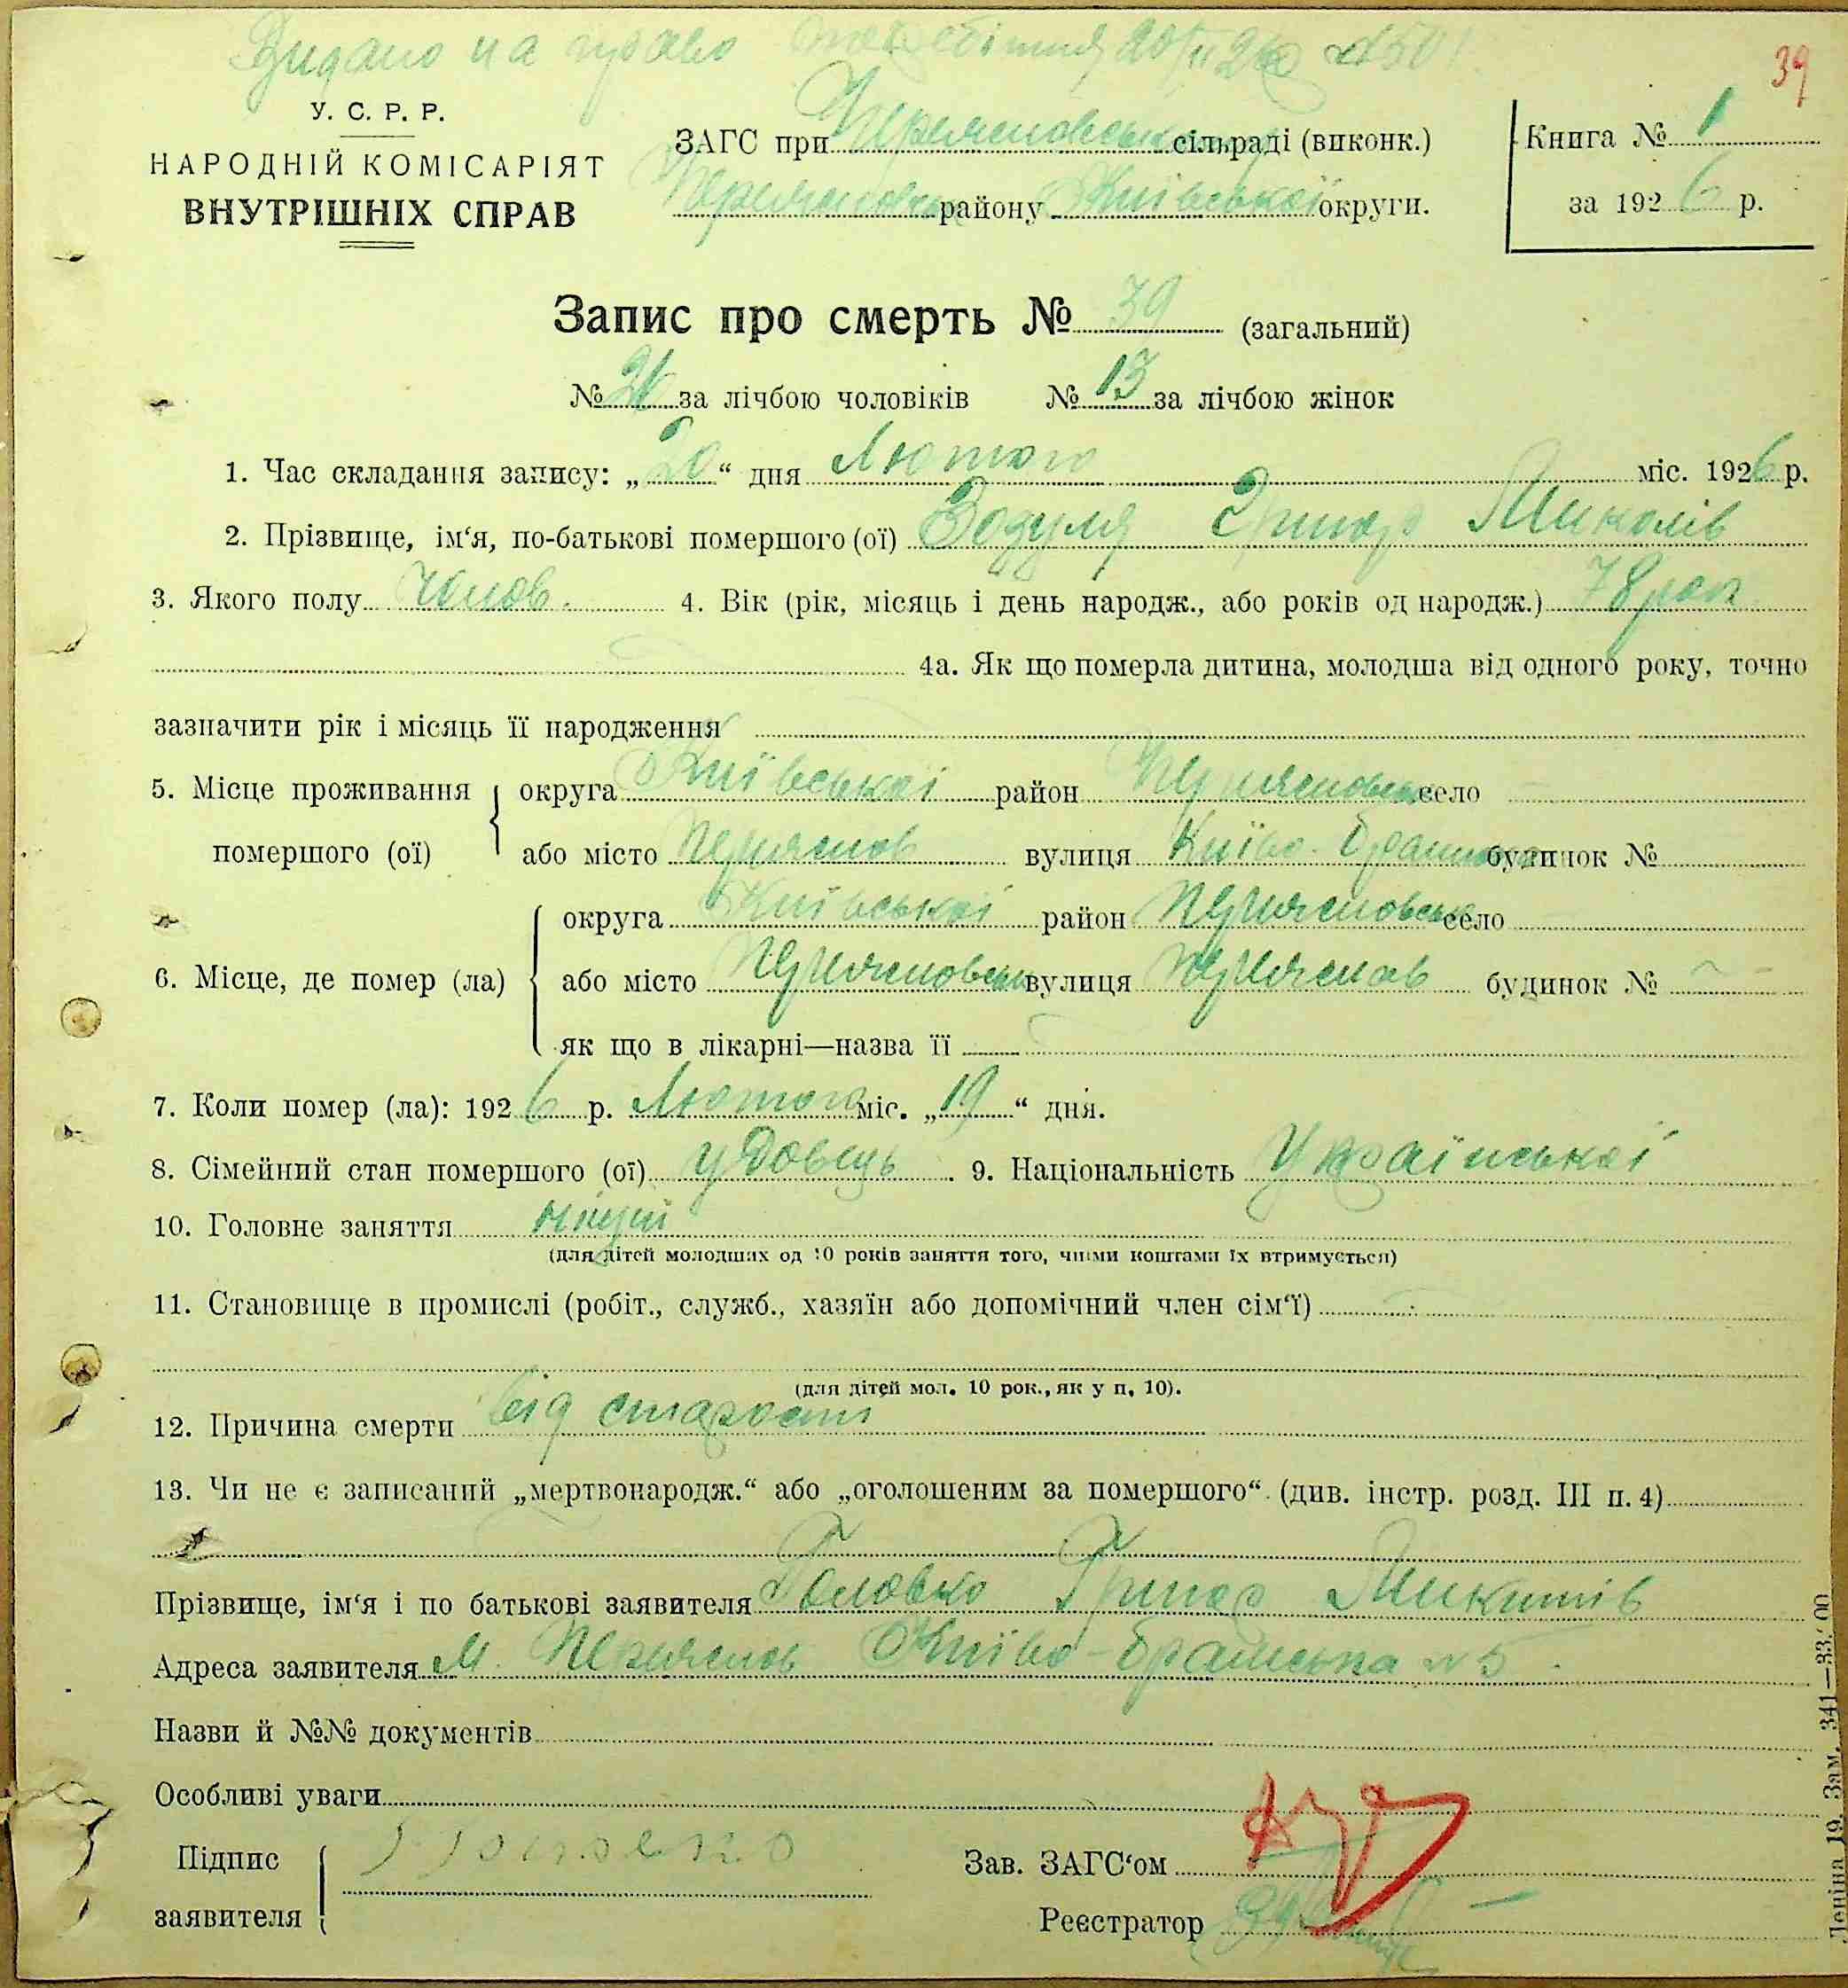 Видано на право 20/II 26 №501
39
У. С. Р. Р.
НАРОДНІЙ КОМІСАРІЯТ
ВНУТРІШНІХ СПРАВ
ЗАГС при Переяславськ сільраді (виконк.)
Переяславськ району Київської округи.
Книга № 1
за 1926 р.
Запис про смерть № 39 (загальний)
№ за лічбою чоловіків № 13 за лічбою жінок
1. Час складання запису: „20“ дня Лютого міс. 1926 р.
2. Прізвище, ім‘я, по-батькові помершого (ої) Зодуля Григор Миколів
3. Якого полу Чолов. 4. Вік (рік, місяць і день народж., або років од народж.) 78 рок
4а. Як що померла дитина, молодша від одного року, точно
зазначити рік і місяць її народження
5. Місце проживання помершого (ої) округа Київської район Переяславськ село
або місто Переяслав вулиця Київо-Брамська будинок №
6. Місце, де помер (ла) округа Київської район Переяславськ село
або місто Переяславськ вулиця Переяслав будинок №
як що в лікарні—назва її
7. Коли помер (ла): 1926 р. Лютого міс. „19“ дня.
8. Сімейний стан помершого (ої) удовець. 9. Національність Української
10. Головне заняття
(для дітей молодших од 10 років заняття того, чиїми коштами їх втримується)
11. Становище в промислі (робіт., служб., хазяїн або допомічний член сім‘ї)
(для дітей мол. 10 рок., як у п. 10).
12. Причина смерти від старости
13. Чи не є записаний „мертвонародж.“ або „оголошеним за помершого“ (див. інстр. розд. III п. 4)
Прізвище, ім‘я і по батькові заявителя Головко Григор Микитів
Адреса заявителя м. Переяслав Київо-Брамська №5
Назви й №№ документів
Особливі уваги
Підпис заявителя
Зав. ЗАГС‘ом
Реєстратор
Леніна 19. Зам. 341—33.